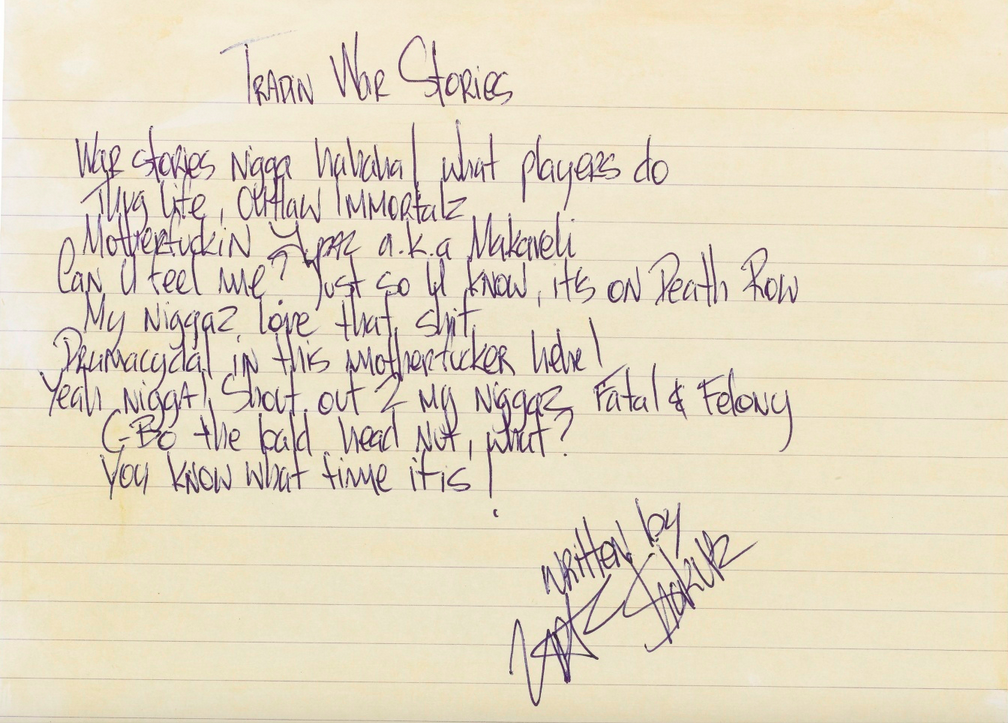 Tradin War Stories
War stories Nigga hahaha! what players do
Thug Life, Outlaw Immortalz
Motherfuckin 2paz a.k.a Makaveli
Can U feel me? Just so U know, it's on Death Row
My Niggaz love that shit
Drumacydal in this motherfucker hehe!
Yeah Nigga! Shout out 2 my Niggaz Fatal & Felony
C-Bo the bald head Nut, what?
You know what time it is!
written by
Shakur